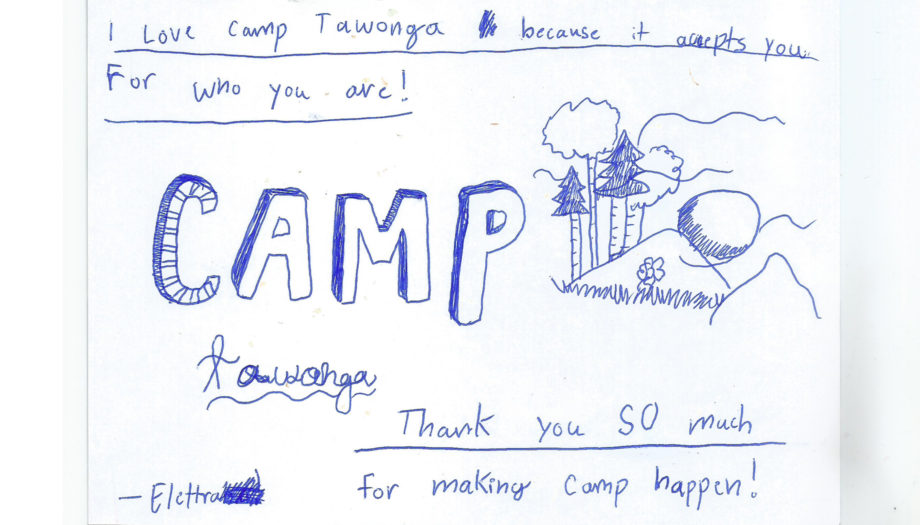 I Love Camp Tawonga because it accepts you
For who you are!
CAMP
tawonga
Thank you SO much
for making Camp happen!
— Elettra